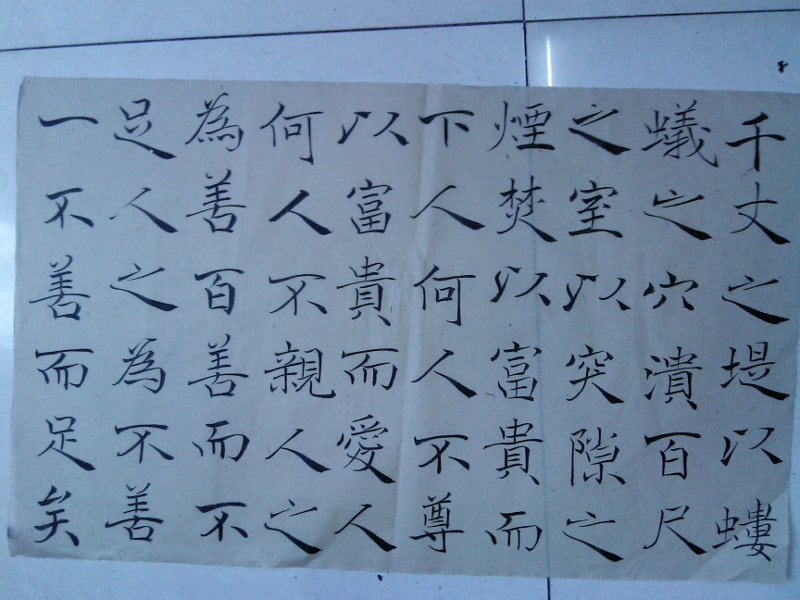 千丈之堤以螻
蟻之穴潰百尺
之室以突隙之
煙焚以富貴而
下人何人不尊
以富貴而愛人
何人不親人之
為善百善而不
足人之為不善
一不善而足矣